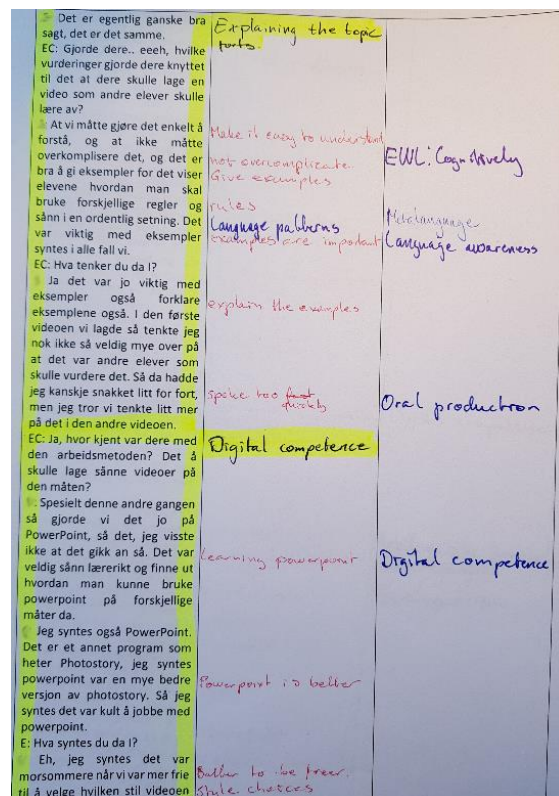 Det er egentlig ganske bra
sagt, det er det samme.
EC: Gjorde dere.. eeeh, hvilke
vurderinger gjorde dere knyttet
til det at dere skulle lage en
video som andre elever skulle
lære av?
At vi måtte gjøre det enkelt å
forstå, og at ikke måtte
overkomplisere det, og det er
bra å gi eksempler for det viser
elevene hvordan man skal
bruke forskjellige regler og
sånn i en ordentlig setning. Det
var viktig med eksempler
syntes i alle fall vi.
EC: Hva tenker du da I?
Ja det var jo viktig med
eksempler også forklare
eksemplene også. I den første
videoen vi lagde så tenkte jeg
nok ikke så veldig mye over på
at det var andre elever som
skulle vurdere det. Så da hadde
jeg kanskje snakket litt for fort,
men jeg tror vi tenkte litt mer
på det i den andre videoen.
EC: Ja, hvor kjent var dere med
den arbeidsmetoden? Det å
skulle lage sånne videoer på
den måten?
Spesielt denne andre gangen
så gjorde vi det jo på
PowerPoint, så det, jeg visste
ikke at det gikk an så. Det var
veldig sånn lærerikt og finne ut
hvordan man kunne bruke
powerpoint på forskjellige
måter da.
Jeg syntes også PowerPoint.
Det er et annet program som
heter Photostory, jeg syntes
powerpoint var en mye bedre
versjon av photostory. Så jeg
syntes det var kult å jobbe med
powerpoint.
E: Hva syntes du da I?
Eh, jeg syntes det var
morsommere når vi var mer frie
til å velge hvilken stil videoen
Explaining the topic
Make it easy to understand
not overcomplicate.
Give examples
rules
Language patterns
examples are important
explain the examples
spoke too fast
quickly
Digital competence
Learning powerpoint
Powerpoint is better
Better to be freer.
Style choices
EWL: Cognitively
Metalanguage
Language awareness
Oral production
Digital competence